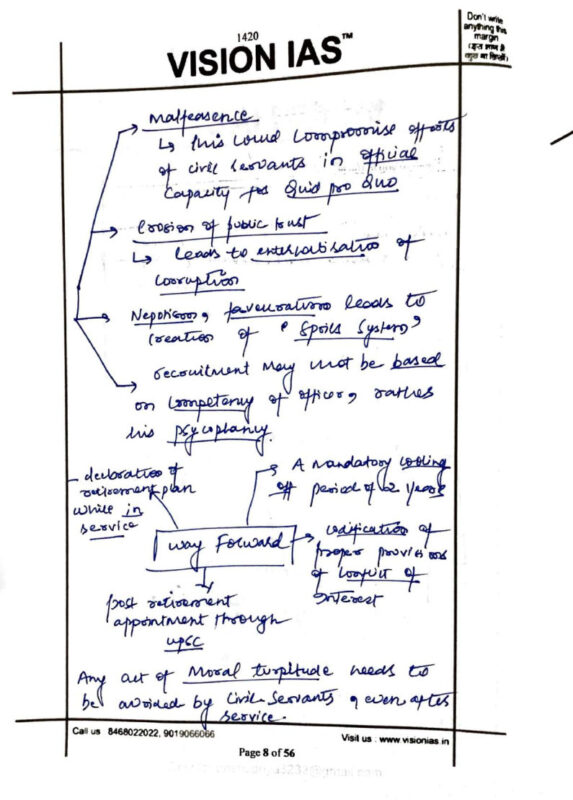 1420
VISION IAS™
Don't write
anything this
margin
Malfeasence
↳ this could compromise efforts
of civil servants in official
capacity for Quid pro Quo
Erosion of public trust
↳ leads to of
corruption
Nepotism, leads to
creation of 'Spoils System'
recruitment may not be based
on competency of officer, rather
his psycophancy.
declaration of
retirement plan
while in
service
A mandatory cooling
off period of 2 Years
Way Forward
→ codification of
proper provisions
of conflict of
Interest
post retirement
appointment through
UPSC
Any act of Moral turpitude needs to
be avoided by Civil Servants, even after
service.
Call us 8468022022, 9019066066
Visit us : www.visionias.in
Page 8 of 56